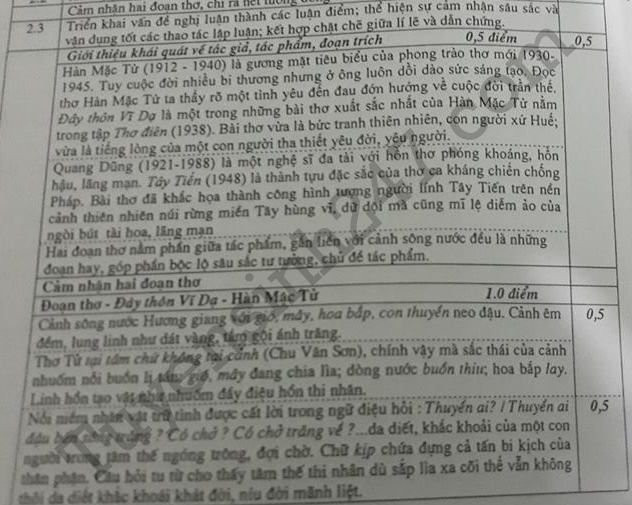 Cảm nhận hai đoạn thơ, chỉ ra nét tương
2.3 Triển khai vấn đề nghị luận thành các luận điểm; thể hiện sự cảm nhận sâu sắc và
vận dụng tốt các thao tác lập luận; kết hợp chặt chẽ giữa lí lẽ và dẫn chứng.
Giới thiệu khái quát về tác giả, tác phẩm, đoạn trích 0,5 điểm 0,5
Hàn Mặc Tử (1912 - 1940) là gương mặt tiêu biểu của phong trào thơ mới 1930-
1945. Tuy cuộc đời nhiều bi thương nhưng ở ông luôn dồi dào sức sáng tạo. Đọc
thơ Hàn Mặc Tử ta thấy rõ một tình yêu đến đau đớn hướng về cuộc đời trần thế.
Đây thôn Vĩ Dạ là một trong những bài thơ xuất sắc nhất của Hàn Mặc Tử nằm
trong tập Thơ điên (1938). Bài thơ vừa là bức tranh thiên nhiên, con người xứ Huế;
vừa là tiếng lòng của một con người tha thiết yêu đời, yêu người.
Quang Dũng (1921-1988) là một nghệ sĩ đa tài với hồn thơ phóng khoáng, hồn
hậu, lãng mạn. Tây Tiến (1948) là thành tựu đặc sắc của thơ ca kháng chiến chống
Pháp. Bài thơ đã khắc họa thành công hình tượng người lính Tây Tiến trên nền
cảnh thiên nhiên núi rừng miền Tây hùng vĩ, dữ dội mà cũng mĩ lệ diễm ảo của
ngòi bút tài hoa, lãng mạn
Hai đoạn thơ nằm phần giữa tác phẩm, gắn liền với cảnh sông nước đều là những
đoạn hay, góp phần bộc lộ sâu sắc tư tưởng, chủ đề tác phẩm.
Cảm nhận hai đoạn thơ
Đoạn thơ - Đây thôn Vĩ Dạ - Hàn Mặc Tử 1.0 điểm
Cảnh sông nước Hương giang với gió, mây, hoa bắp, con thuyền neo đậu. Cảnh êm 0,5
đềm, lung linh như dát vàng, tắm gội ánh trăng.
Thơ Tử tại tâm chứ không tại cảnh (Chu Văn Sơn), chính vậy mà sắc thái của cảnh
nhuốm nỗi buồn li tán: gió, mây đang chia lìa; dòng nước buồn thiu; hoa bắp lay.
Linh hồn tạo vật như nhuốm đầy điệu hồn thi nhân.
Nỗi niềm nhân vật trữ tình được cất lời trong ngữ điệu hỏi : Thuyền ai? / Thuyền ai 0,5
đậu bến sông trăng ? Có chở ? Có chở trăng về ?...da diết, khắc khoải của một con
người trong tâm thế ngóng trông, đợi chờ. Chữ kịp chứa đựng cả tấn bi kịch của
thân phận. Câu hỏi tu từ cho thấy tâm thế thi nhân dù sắp lìa xa cõi thế vẫn không
thôi da diết khắc khoải khát đời, níu đời mãnh liệt.